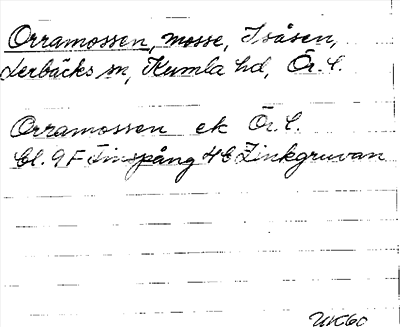 Orramossen, mosse, Isåsen,
Lerbäcks sn, Kumla hd, Ör. l.
Orramossen ek Ör. l.
bl. 9 F Finspång 4 C Zinkgruvan